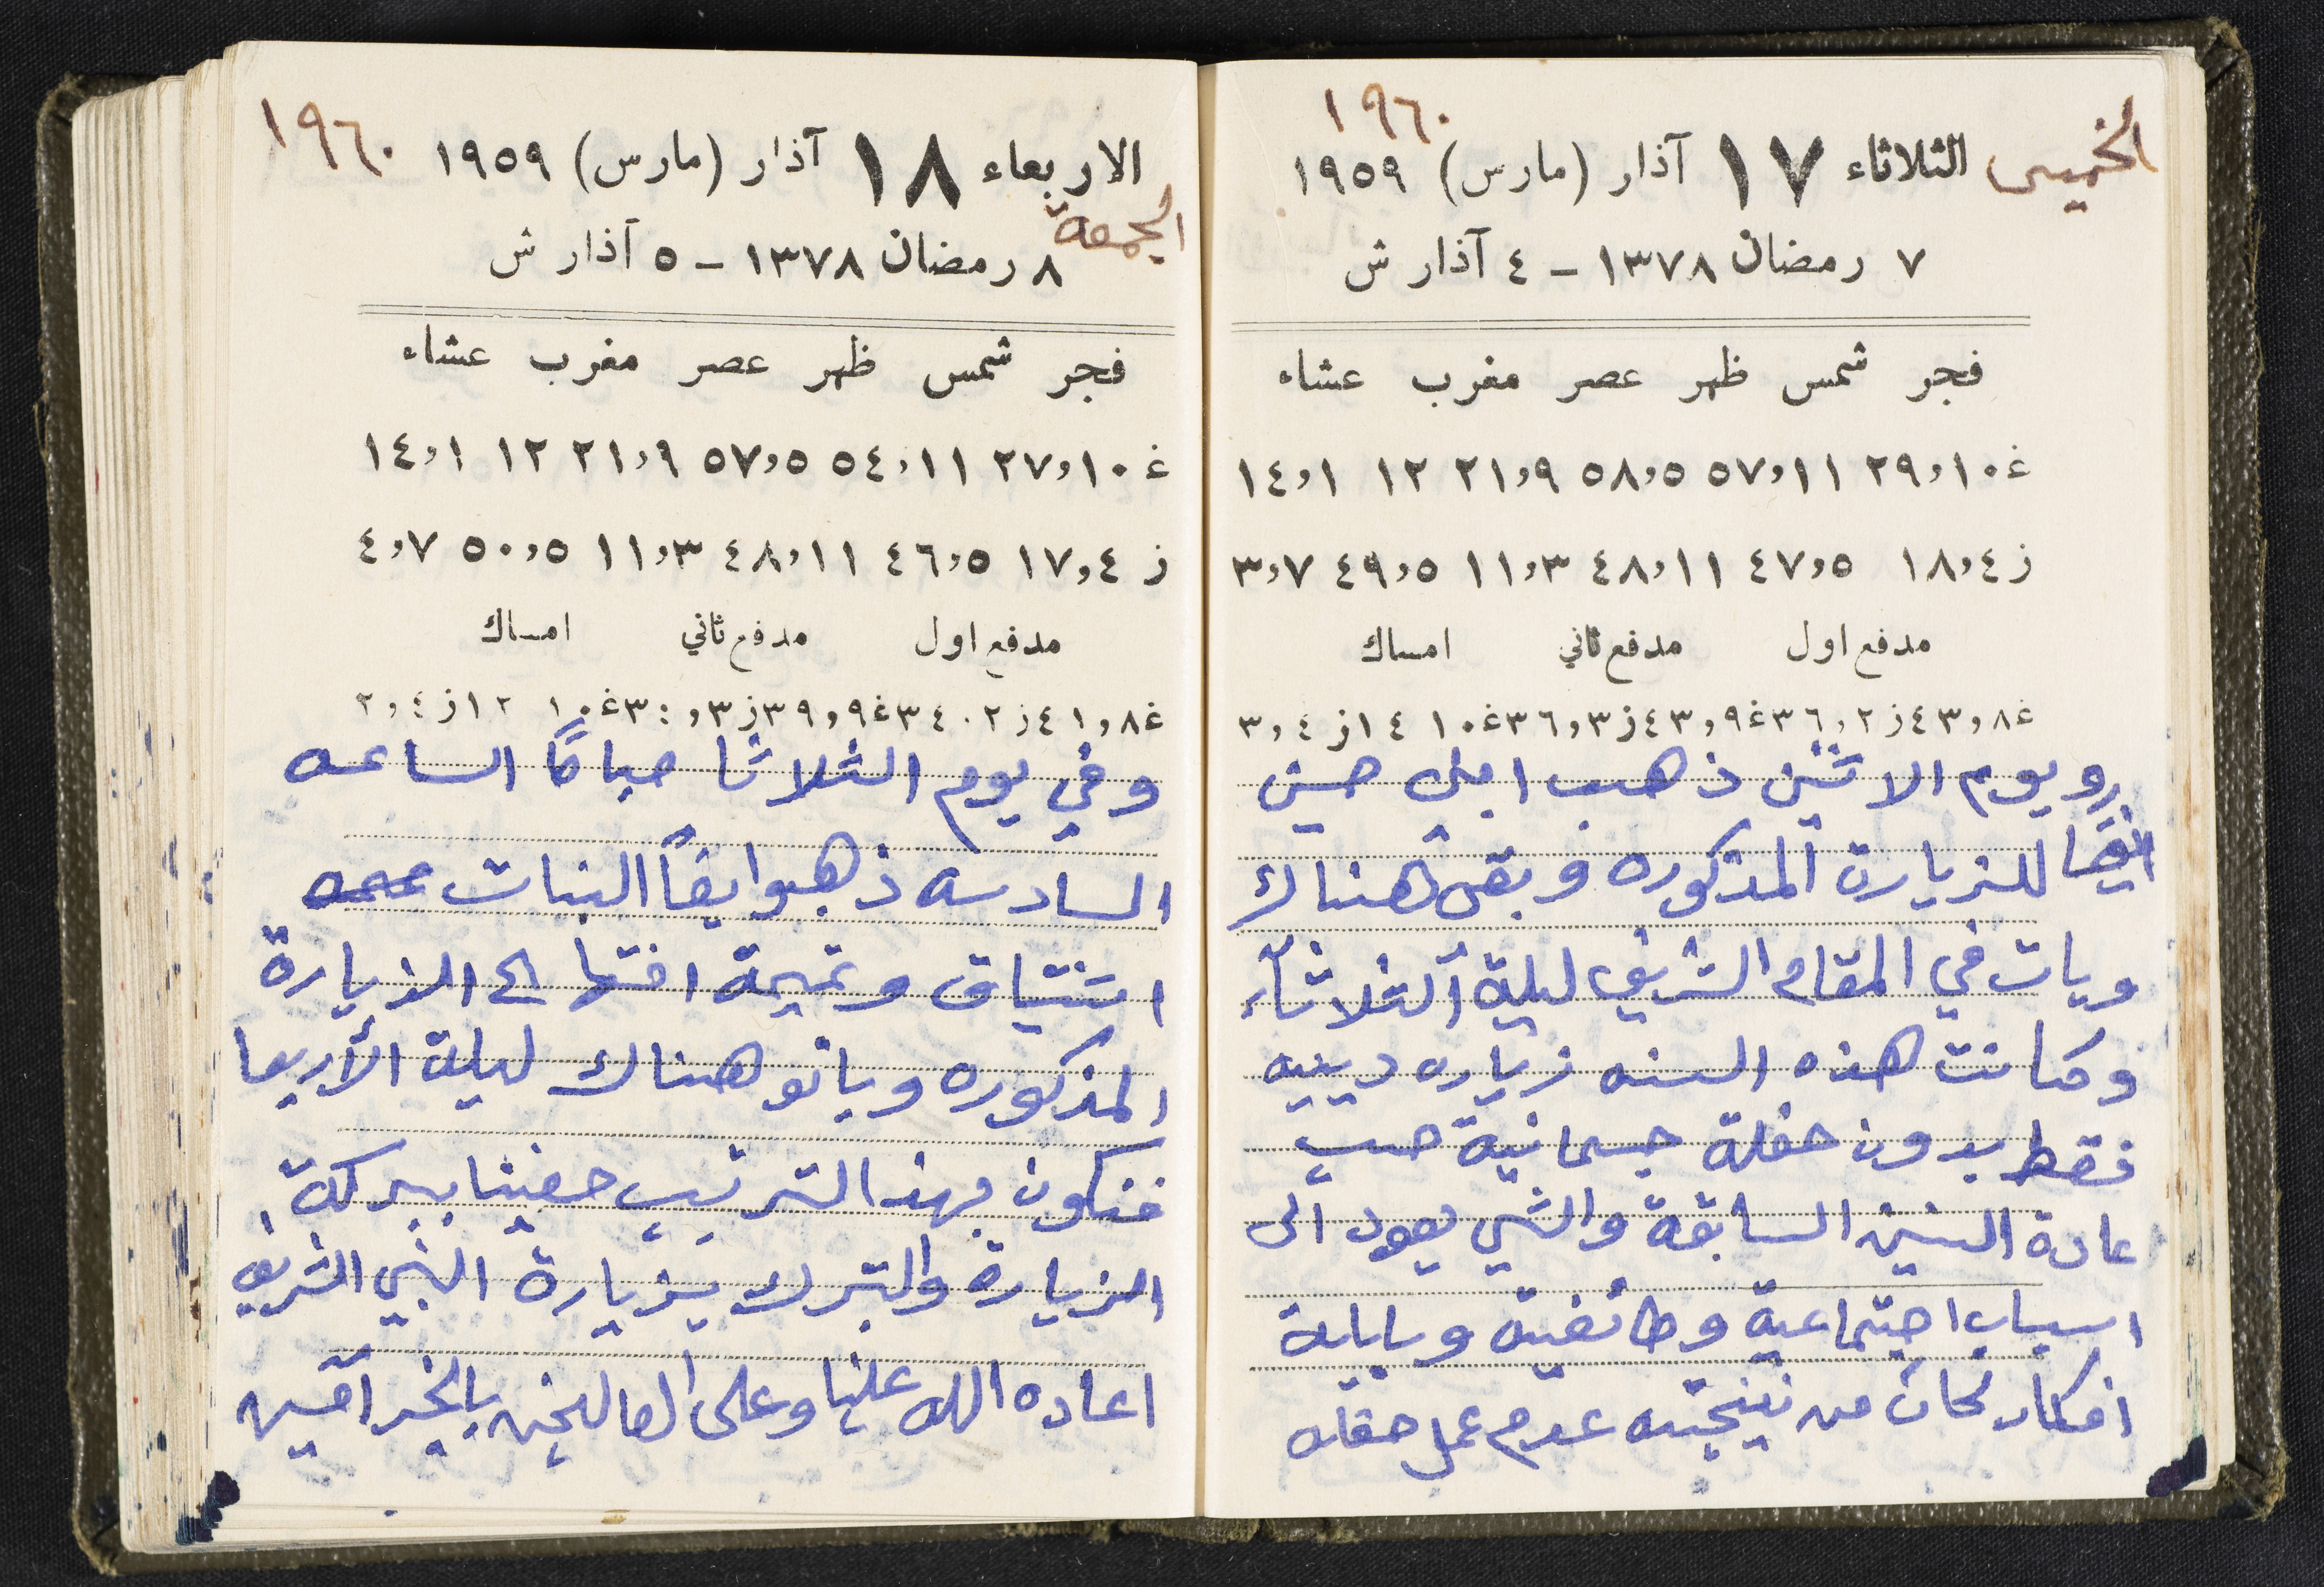 ١٩٦٠
الخميس الثلاثاء ١٧ آذار (مارس) ١٩٥٩
٧ رمضان ١٣٧٨ - ٤ آذار ش
فجر شمس ظهر عصر مغرب عشاء
غ ١٠,٢٩ ١١,٥٧ ٥,٥٨ ٩,٢١ ١٢ ١,١٤
ز ٤,١٨ ٥,٤٧ ١١,٤٨ ٣,١١ ٥,٤٩ ٧,٣
مدفع اول مدفع ثاني امساك
غ ٨,٤٣ ز ٢,٣٦ غ ٩,٤٣ ز ٣,٣٦ غ ١٠ ١٤ ز ٤,٣
ويوم الاثنين ذهب ابني حسن
ايضًا للزيارة المذكوره وبقى هناك
وبات في المقام الشريف ليلة الثلاثاء
وكانت هذه السنه زياره دينيه
فقط بدون حفلة جسمانية حسب
عادة السنين السابقة والشي يعود الى
اسباب اجتماعية وطائفية وبلبلة
افكار فكان من نتيجته عدم عمل حفله
١٩٦٠
الاربعاء ١٨ آذار (مارس) ١٩٥٩
الجمعة
٨ رمضان ١٣٧٨ - ٥ آذار ش
فجر شمس ظهر عصر مغرب عشاء
غ ١٠,٢٧ ١١,٥٤ ٥,٥٧ ٩,٢١ ١٢ ١,١٤
ز ٤,١٧ ٥,٤٦ ١١,٤٨ ٣,١١ ٥,٥٠ ٧,٤
مدفع اول مدفع ثاني امساك
غ ٨,٤١ ز ٢.٣٤ غ ٩,٣٩ ز ٣, غ ١٠ ١٢ ز ٤,٢
وفي يوم الثلاثا صباحًا الساعه
السادسه ذهبوا ايضًا البنات
اشتياق وتميمة اختها الى الزيارة
المذكوره وباتو هناك ليلة الأربعا
فنكون بهذا الترتيب حضينا ببركة
الزيارة والتبرك بزيارة النبي الشريف
اعاده الله علينا وعلى الصالحين بالخير آمين